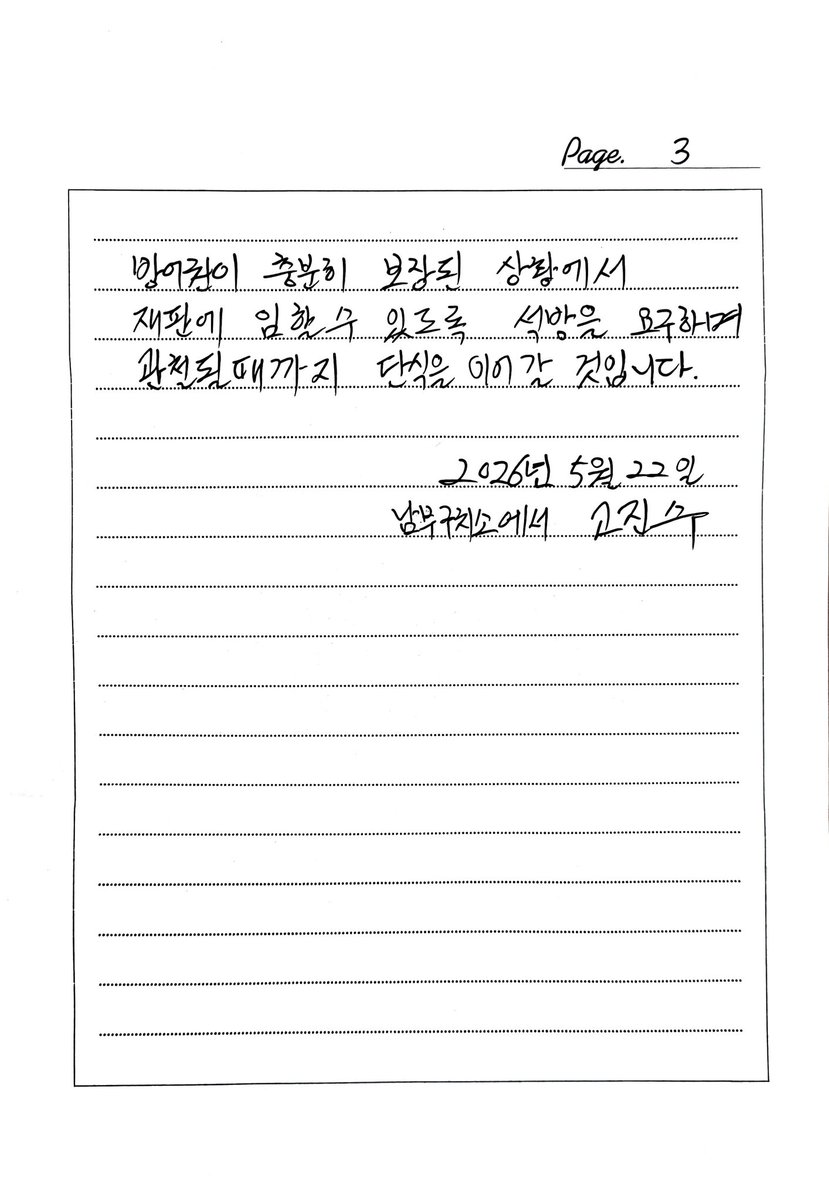 Page. 3
방어권이 충분히 보장된 상황에서
재판에 임할수 있도록 석방을 요구하며
관철될때까지 단식을 이어갈 것입니다.
2026년 5월 22일
남부구치소에서 고진수